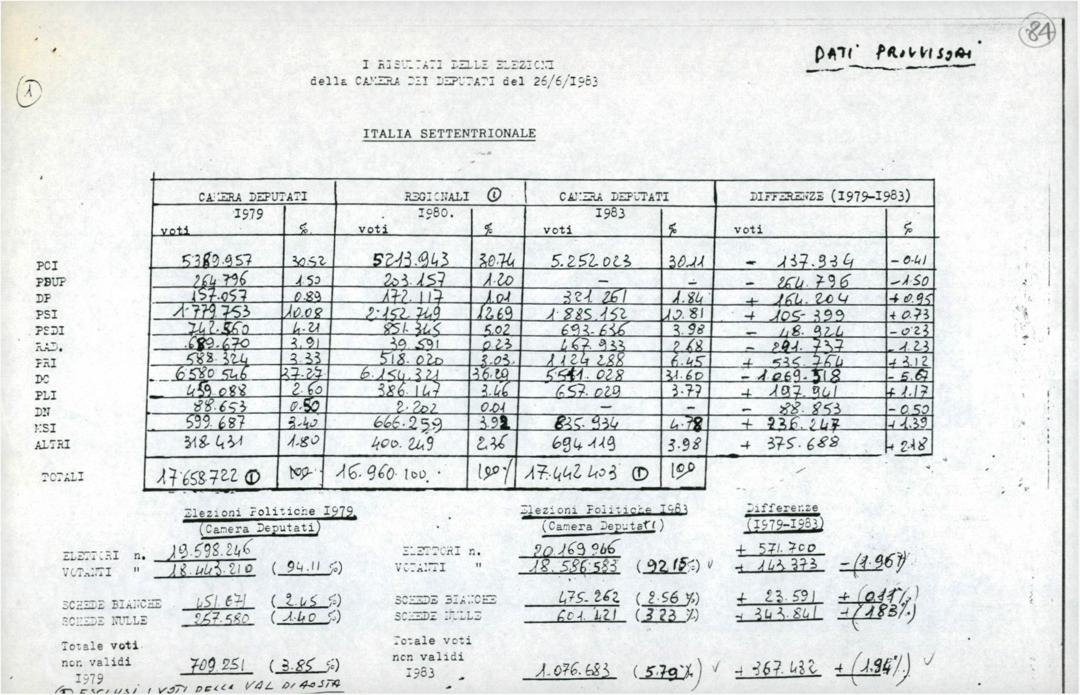 84
DATI PROVVISORI
I RISULTATI DELLE ELEZIONI
della CAMERA DEI DEPUTATI del 26/6/I983
1
ITALIA SETTENTRIONALE
CAMERA DEPUTATI REGIONALI 1 CAMERA DEPUTATI DIFFERENZE (I979-I983)
I979 I980. I983
voti % voti % voti % voti %
PCI 5389.957 30.52 5213.943 30.74 5.252023 30.11 - 137.934 - 0.41
PDUP 264796 1.50 203.157 1.20 - - - 264.796 - 1.50
DP 157.057 0.89 172.117 1.01 321261 1.84 + 164.204 + 0.95
PSI 1.779753 10.08 2.152.749 12.69 1.885.152 10.81 + 105.399 + 0.73
PSDI 742.560 4.21 851.345 5.02 693.636 3.98 - 48.924 - 0.23
RAD. 689.670 3.91 39.591 0.23 467.933 2.68 - 221.737 - 1.23
PRI 588.324 3.33 518.020 3.03. 1.124.288 6.45 + 535.764 + 3.12
DC 6580546 37.27 6.154.321 36.29 5511.028 31.60 - 1.069.518 - 5.67
PLI 459.088 2.60 386.147 3.46 657.029 3.77 + 197.941 + 1.17
DN 88.653 0.50 2.202 0.01 - - - 88.853 - 0.50
MSI 599.687 3.40 666.259 3.92 835.934 4.78 + 236.247 + 1.39
ALTRI 318.431 1.80 400.249 2.36 694.119 3.98 + 375.688 + 2.18
TOTALI 17658.722 1 100 16.960.100. 100% 17.442.403 1 100
Elezioni Politiche I979 Elezioni Politiche I983 Differenze
(Camera Deputati) (Camera Deputati) (I979-I983)
ELETTORI n. 19.598.246 ELETTORI n. 20.169.946 + 571.700
VOTANTI " 18.443.210 (94.11 %) VOTANTI " 18.586.583 (92.15 %) + 143.373 - (1.96%)
SCHEDE BIANCHE 451.671 (2.45 %) SCHEDE BIANCHE 475.262 (2.56 %) + 23.591 + (0.11%)
SCHEDE NULLE 257.580 (1.40 %) SCHEDE NULLE 601.421 (3.23 %) + 343.841 + (1.83%)
Totale voti Totale voti
non validi 709.251 (3.85 %) non validi 1.076.683 (5.79 %) + 367.432 + (1.94%)
I979 I983
(1) ESCLUSI I VOTI DELLA VAL DI AOSTA